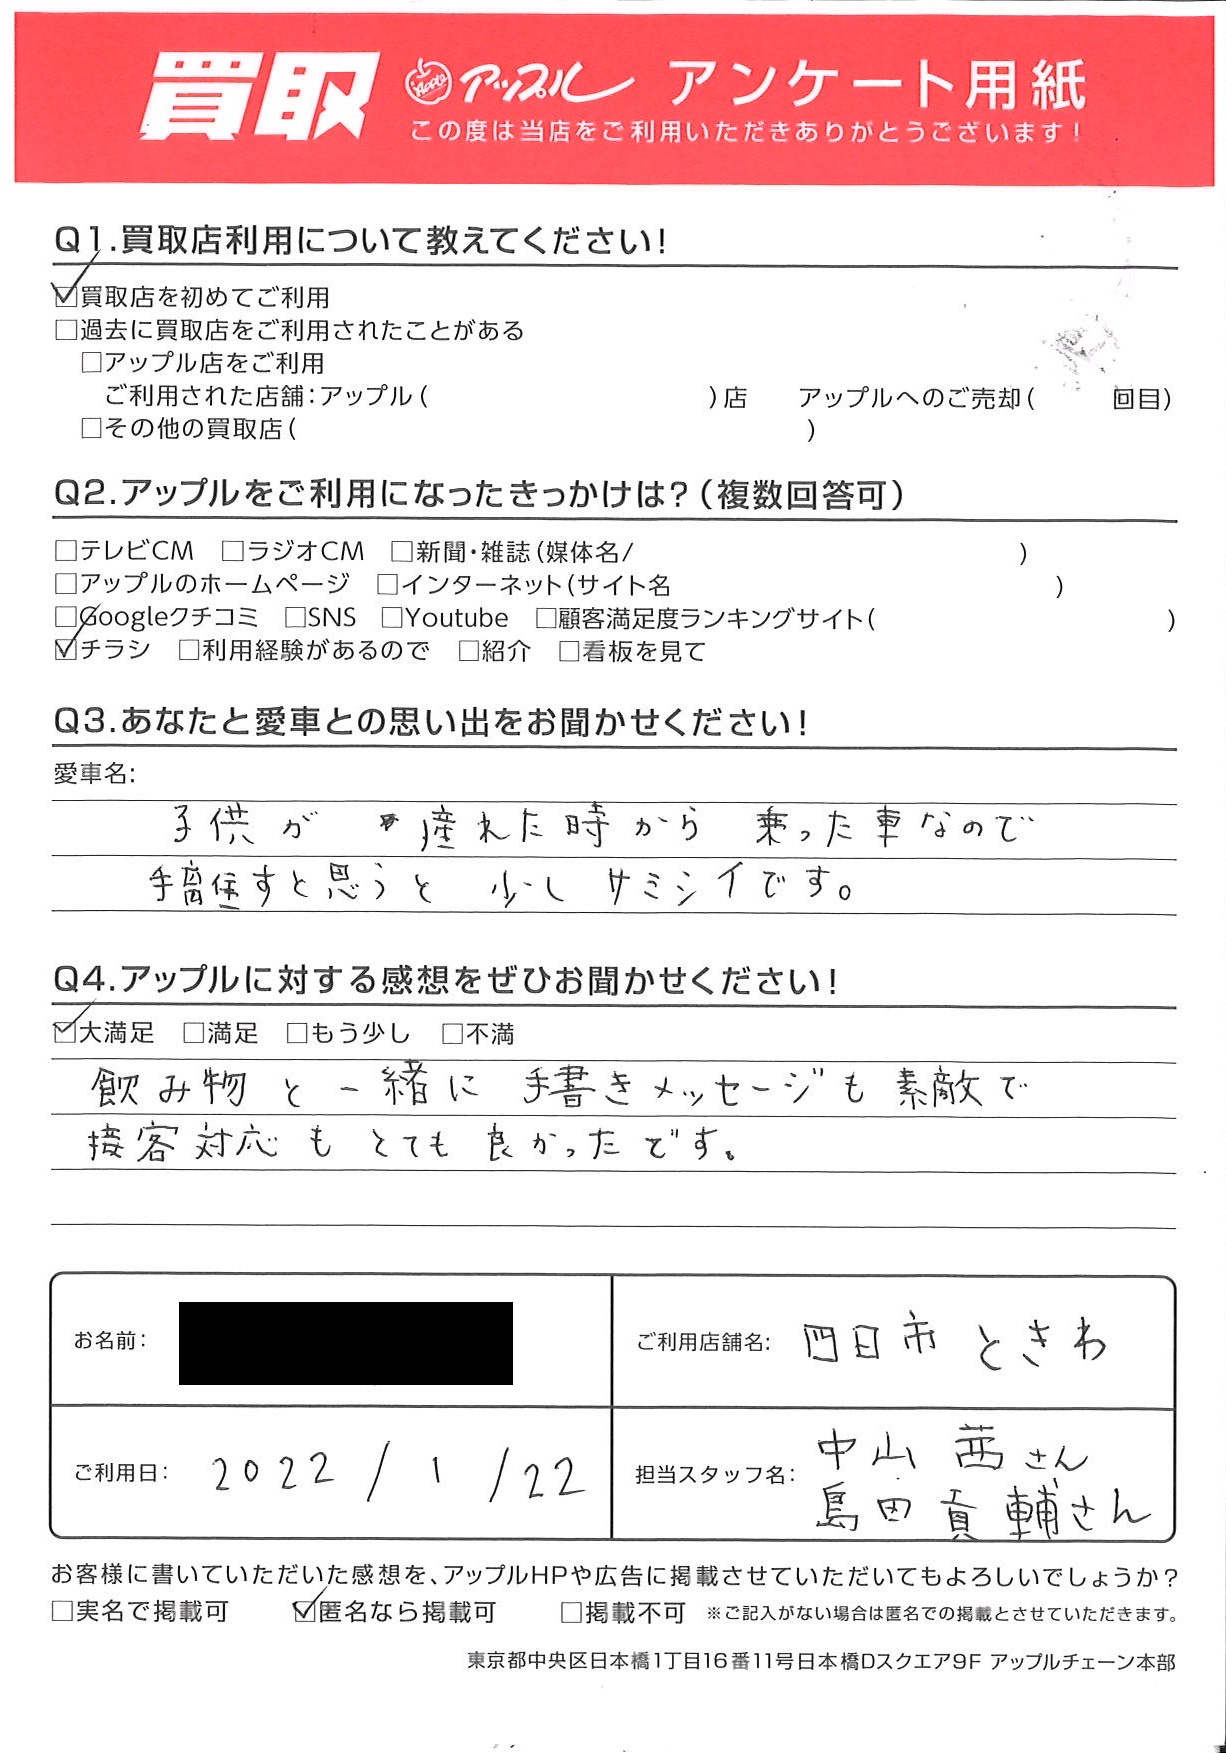 買取 アップル アンケート用紙
この度は当店をご利用いただきありがとうございます！
Q1.買取店利用について教えてください！
☑買取店を初めてご利用
□過去に買取店をご利用されたことがある
□アップル店をご利用
ご利用された店舗：アップル（　　）店　アップルへのご売却（　　回目）
□その他の買取店（　　）
Q2.アップルをご利用になったきっかけは？（複数回答可）
□テレビCM　□ラジオCM　□新聞・雑誌（媒体名/　　）
□アップルのホームページ　□インターネット（サイト名　　）
□Googleクチコミ　□SNS　□Youtube　□顧客満足度ランキングサイト（　　）
☑チラシ　□利用経験があるので　□紹介　□看板を見て
Q3.あなたと愛車との思い出をお聞かせください！
愛車名：
子供が 産れた時から 乗った車なので
手離すと思うと 少し サミシイです。
Q4.アップルに対する感想をぜひお聞かせください！
☑大満足　□満足　□もう少し　□不満
飲み物と一緒に 手書きメッセージも素敵で
接客対応も とても 良かったです。
お名前：
ご利用店舗名：四日市 ときわ
ご利用日：2022/1/22
担当スタッフ名：中山 茜さん
島田 貢輔さん
お客様に書いていただいた感想を、アップルHPや広告に掲載させていただいてもよろしいでしょうか？
□実名で掲載可　☑匿名なら掲載可　□掲載不可　※ご記入がない場合は匿名での掲載とさせていただきます。
東京都中央区日本橋1丁目16番11号日本橋Dスクエア9F アップルチェーン本部